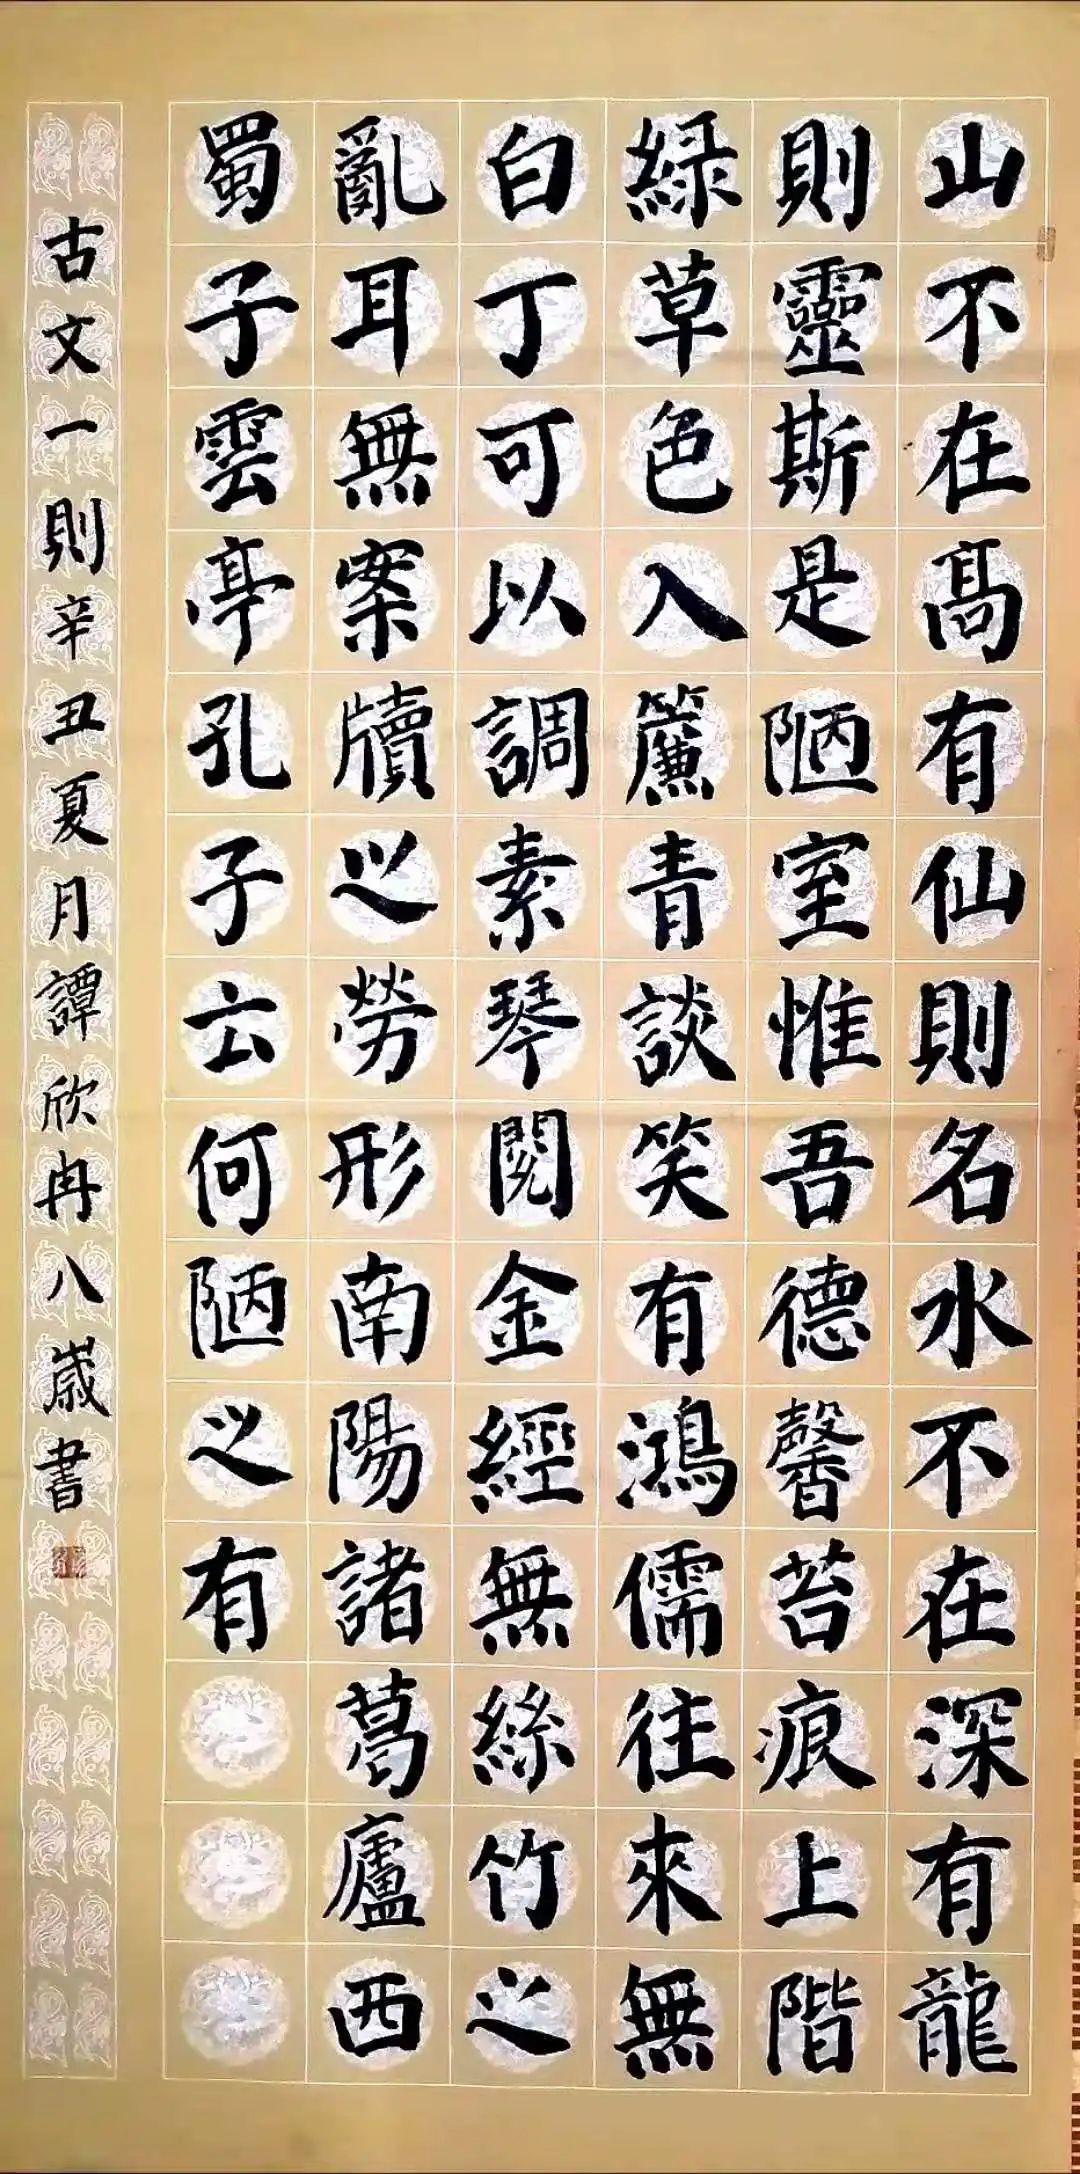 山不在高有仙則名水不在深有龍
則靈斯是陋室惟吾德馨苔痕上階
綠草色入簾青談笑有鴻儒往來無
白丁可以調素琴閱金經無絲竹之
亂耳無案牘之勞形南陽諸葛廬西
蜀子雲亭孔子云何陋之有
古文一則辛丑夏月譚欣冉八歲書